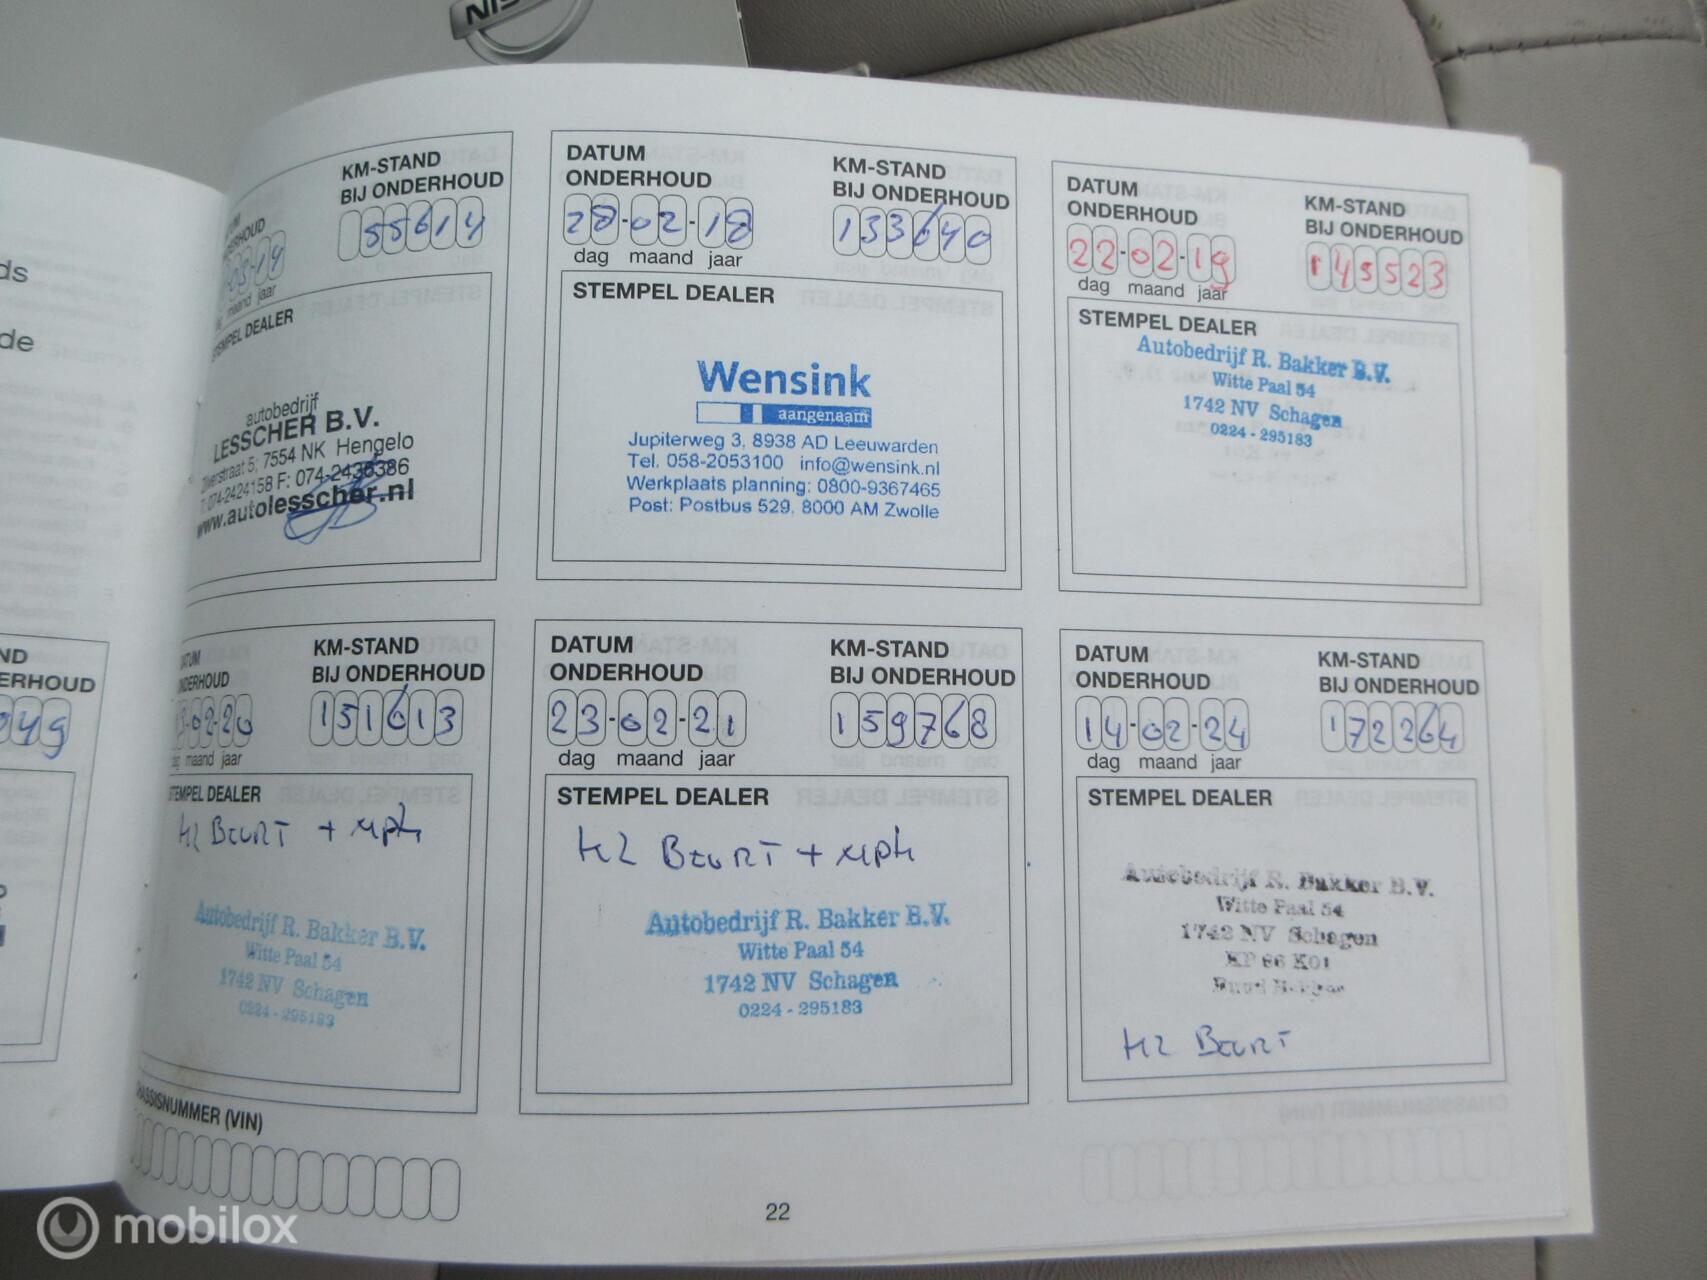 NIS
ds
de
ND
ERHOUD
049
KM-STAND
BIJ ONDERHOUD
55614
maand jaar
STEMPEL DEALER
autobedrijf
LESSCHER B.V.
7554 NK Hengelo
T: 074-2424158 F: 074-2436386
www.autolesscher.nl
DATUM
ONDERHOUD
KM-STAND
BIJ ONDERHOUD
28-02-18
133640
dag maand jaar
STEMPEL DEALER
Wensink
aangenaam
Jupiterweg 3, 8938 AD Leeuwarden
Tel. 058-2053100 info@wensink.nl
Werkplaats planning: 0800-9367465
Post: Postbus 529, 8000 AM Zwolle
DATUM
ONDERHOUD
KM-STAND
BIJ ONDERHOUD
22-02-19
145523
dag maand jaar
STEMPEL DEALER
Autobedrijf R. Bakker B.V.
Witte Paal 54
1742 NV Schagen
0224 - 295183
KM-STAND
BIJ ONDERHOUD
02-20
151613
maand jaar
STEMPEL DEALER
BEURT +
Autobedrijf R. Bakker B.V.
Witte Paal 54
1742 NV Schagen
0224 - 295183
CHASSISNUMMER (VIN)
DATUM
ONDERHOUD
KM-STAND
BIJ ONDERHOUD
23-02-21
159768
dag maand jaar
STEMPEL DEALER
BEURT +
Autobedrijf R. Bakker B.V.
Witte Paal 54
1742 NV Schagen
0224 - 295183
DATUM
ONDERHOUD
KM-STAND
BIJ ONDERHOUD
14-02-24
172264
dag maand jaar
STEMPEL DEALER
Autobedrijf R. Bakker B.V.
Witte Paal 54
1742 NV Schagen
BEURT
22
mobilox